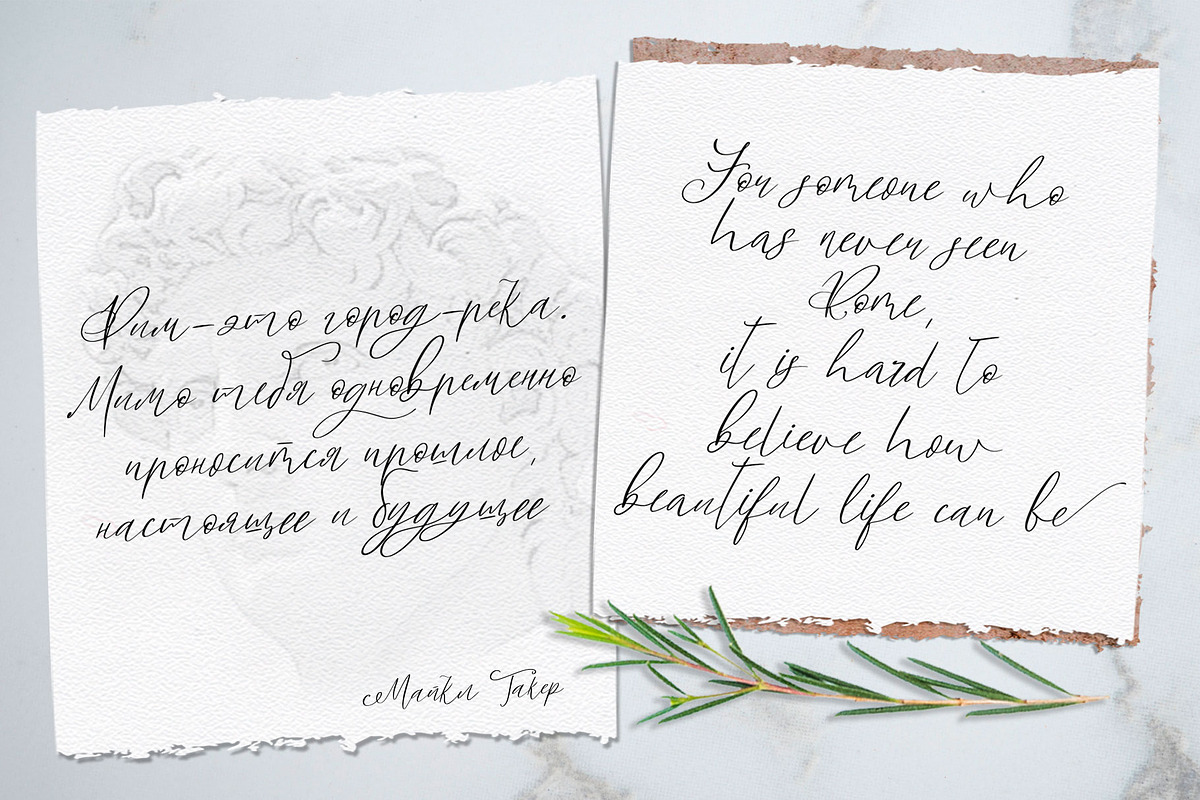 Рим-это город-река.
Мимо тебя одновременно
проносится прошлое,
настоящее и будущее
Майкл Такер
For someone who
has never seen
Rome,
it is hard to
believe how
beautiful life can be